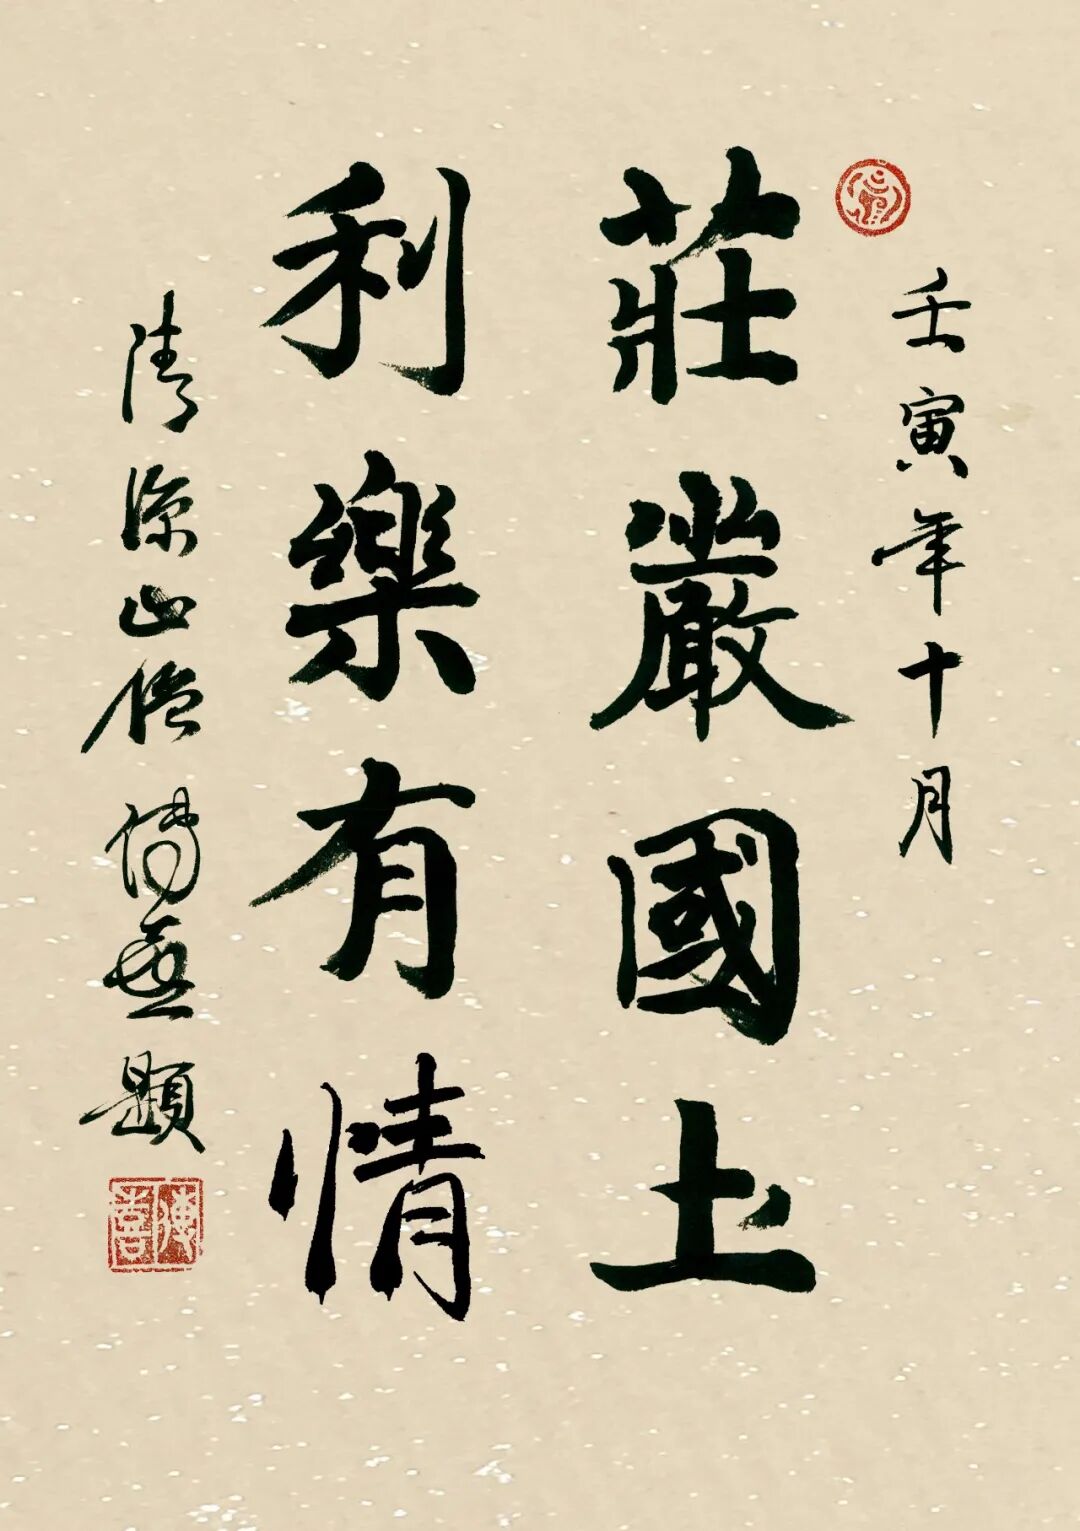 壬寅年十月
莊嚴國土
利樂有情
清涼山僧傳喜題
傳喜